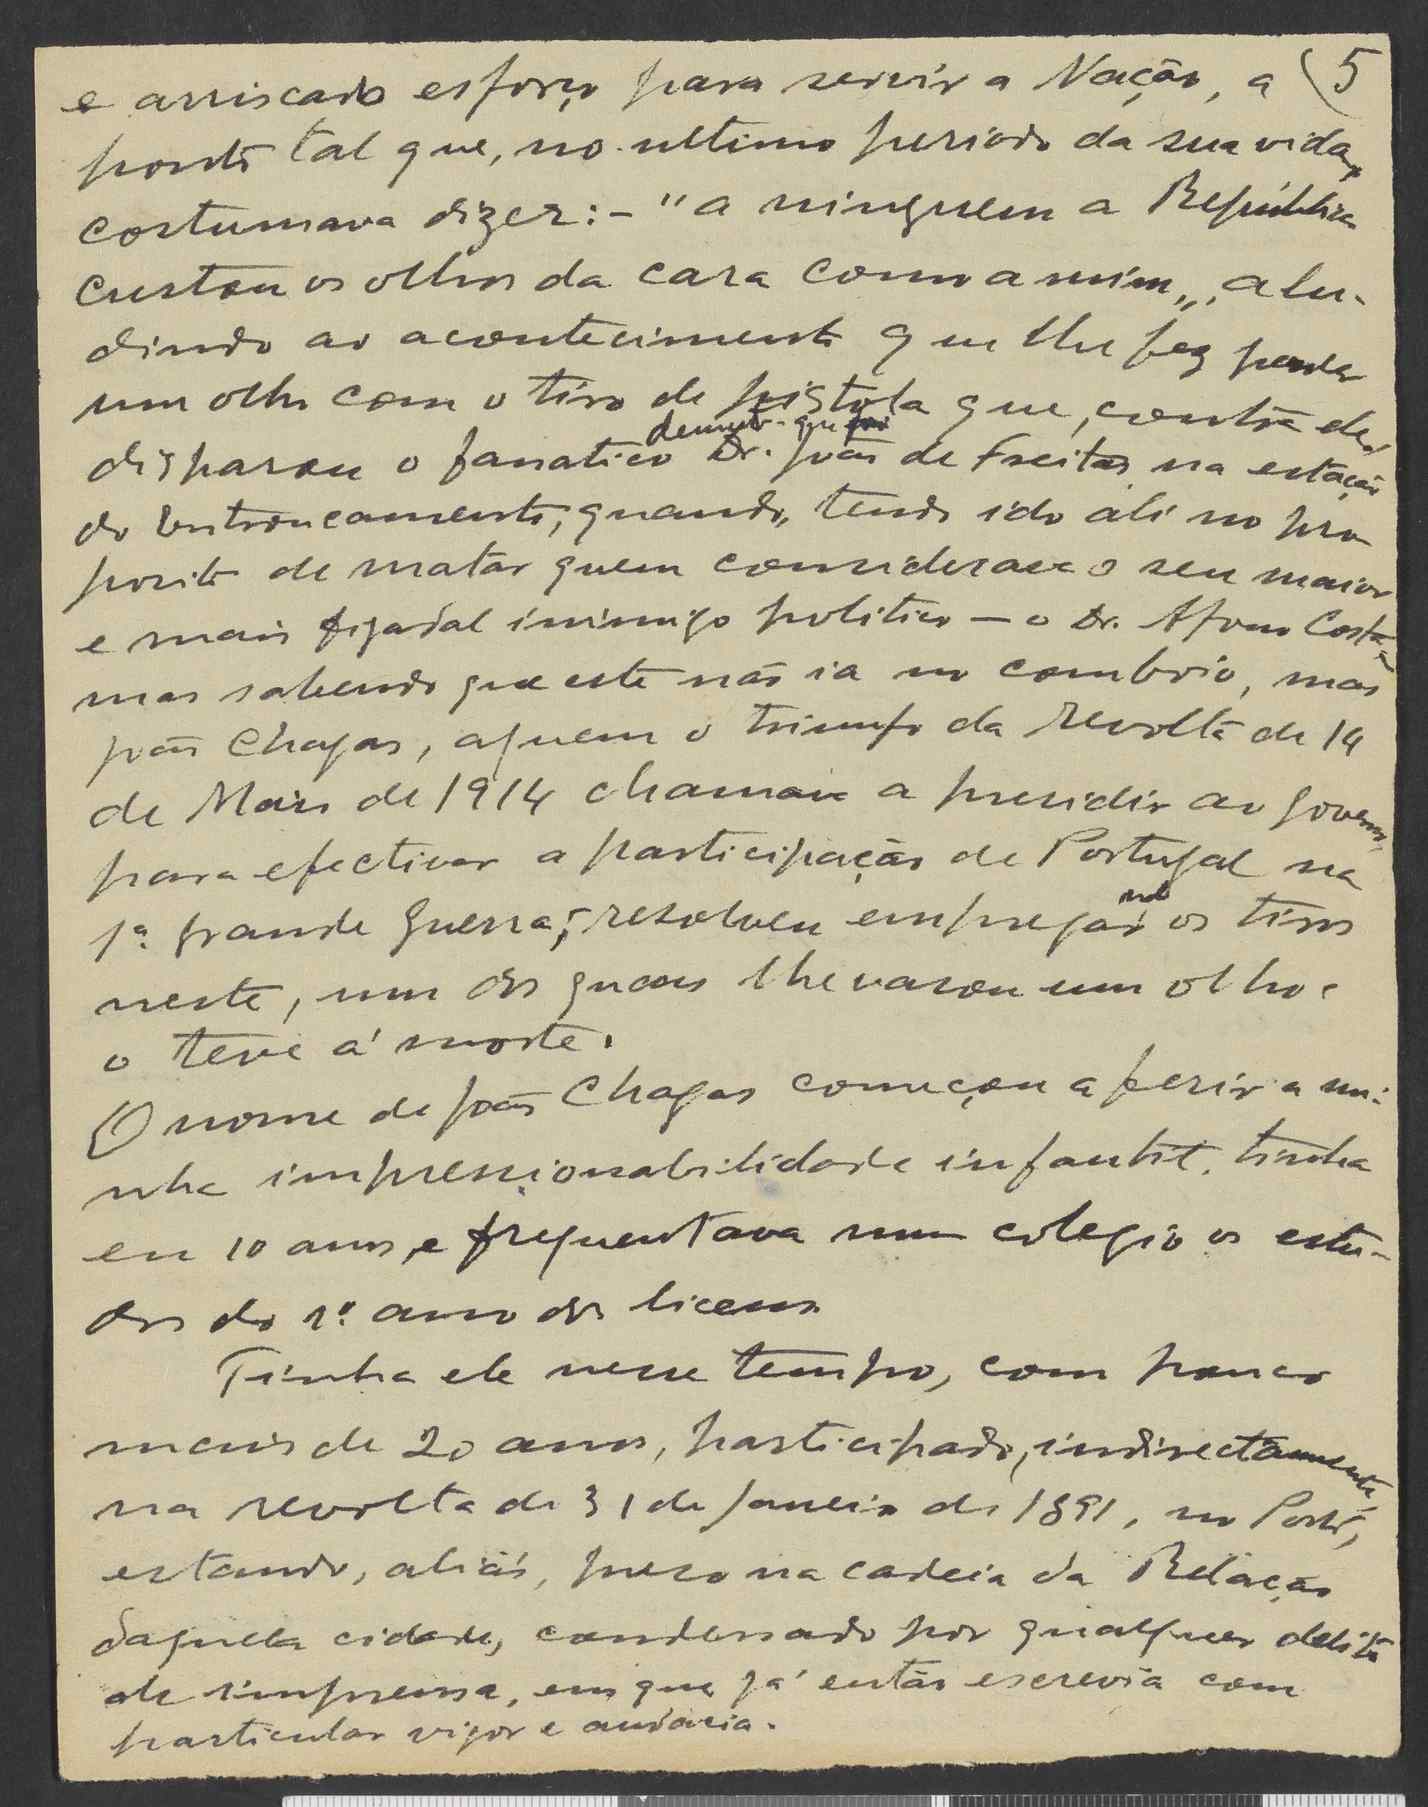 e arriscado esforço para servir a Nação, a (5
ponto tal que, no ultimo periodo da sua vida,
costumava dizer: - "a ninguem a República
custou os olhos da cara como a mim", alu-
dindo ao acontecimento que lhe fez perder
um olho com o tiro de pistola que, contra ele,
disparou o fanatico Dr. João de Freitas na estação
do Entroncamento, quando, tendo ido ali no pro
posito de matar quem considerava o seu maior
e mais figadal inimigo politico — o Dr. Afonso Costa -
mas sabendo que este não ia no comboio, mas
João Chagas, a quem o triunfo da revolta de 14
de Maio de 1914 chamava a presidir ao governo,
para efectivar a participação de Portugal na
1ª grande guerra, resolveu empregar os tiros
neste, um dos quais lhe vasou um olho e
o teve á morte.
O nome de João Chagas começou a ferir a mi-
nha impressionabilidade infantil. tinha
eu 10 anos e frequentava num colegio os estu-
dos do 1º ano dos liceus
Tinha ele nesse tempo, com pouco
mais de 20 anos, participado, indirectamente,
na revolta de 31 de Janeiro de 1891, no Porto,
estando, aliás, preso na cadeia da Relação
daquela cidade, condenado por qualquer delito
de imprensa, em que já então escrevia com
particular vigor e audacia.